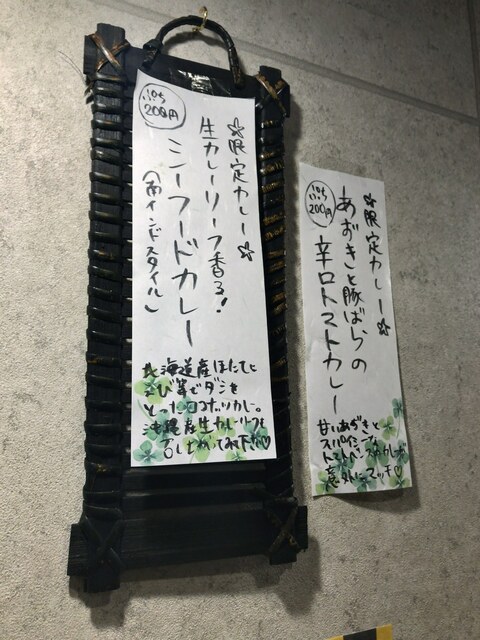 ☆限定カレー☆
生カレーリーフ香る!
シーフードカレー
(南インドスタイル)
ぷち
200円
北海道産ほたてと
えび等でダシを
とったココナッツカレー。
沖縄産生カレーリーフを
召し上がってみて下さい♡
☆限定カレー☆
あずきと豚ばらの
辛口トマトカレー
ぷち
200円
甘いあずきと
スパイシーな
トマトベースのカレーが
意外にマッチ♡